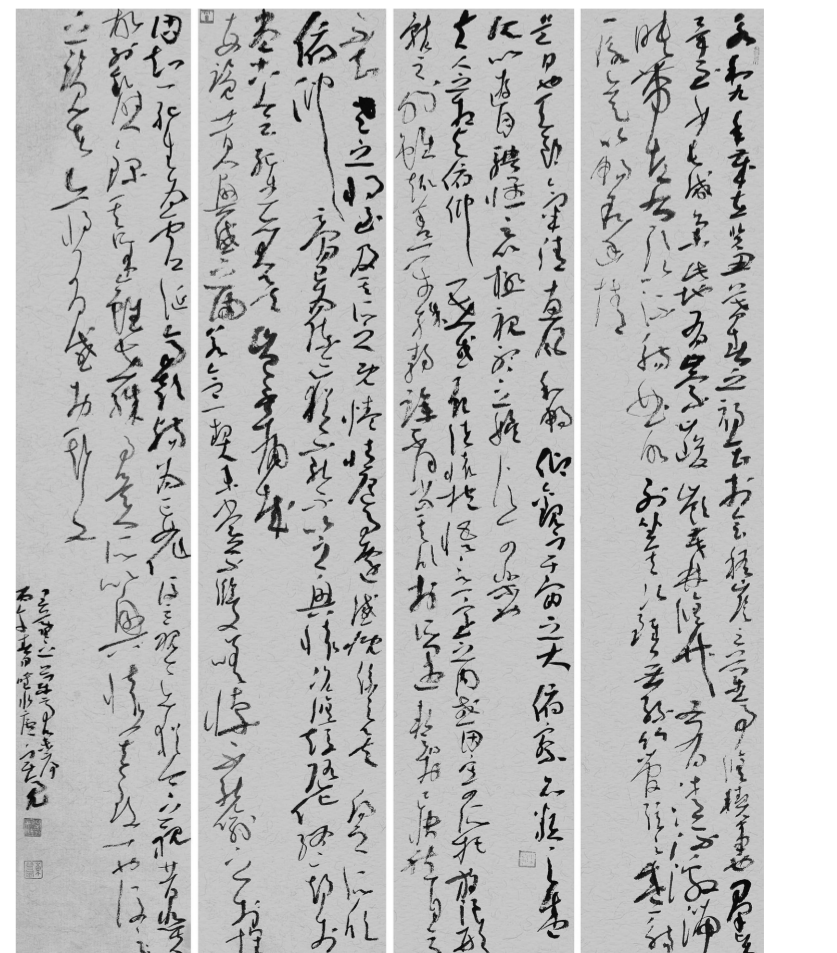 永和九年歲在癸丑暮春之初會于會稽山陰之蘭亭脩禊事也羣賢
畢至少長咸集此地有崇山峻嶺茂林脩竹又有清流激湍
映帶左右引以為流觴曲水列坐其次雖無絲竹管弦之盛一觴
一詠亦足以暢敘幽情
是日也天朗氣清惠風和暢仰觀宇宙之大俯察品類之盛
所以遊目騁懷足以極視聽之娛信可樂也
夫人之相與俯仰一世或取諸懷抱悟言一室之內或因寄所託放浪形
骸之外雖趣舍萬殊靜躁不同當其欣於所遇暫得於己快然自足
不知老之將至及其所之既倦情隨事遷感慨係之矣向之所欣
俯仰之間已為陳迹猶不能不以之興懷況脩短隨化終期於
盡古人云死生亦大矣豈不痛哉
每覽昔人興感之由若合一契未嘗不臨文嗟悼不能喻之於懷
固知一死生為虛誕齊彭殤為妄作後之視今亦猶今之視昔悲夫
故列敘時人錄其所述雖世殊事異所以興懷其致一也後
之覽者亦將有感於斯文
丙午春